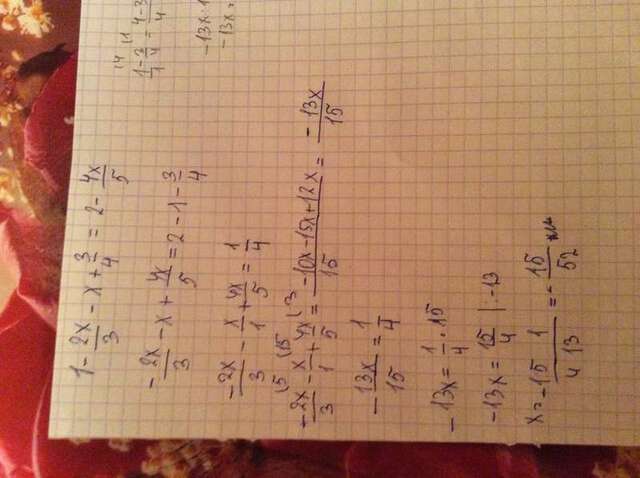 1 - 2x/3 - x + 3/4 = 2 - 4x/5
- 2x/3 - x + 4x/5 = 2 - 1 - 3/4
- 2x/3 - x/1 + 4x/5 = 1/4
(5 (15 (3
- 2x/3 - x/1 + 4x/5 = -10x-15x+12x/15 = - 13x/15
- 13x/15 = 1/4
- 13x = 1/4 · 15
-13x = 15/4 | : -13
x = - 15/4 1/13 = - 15/52
(4 (1
1/1 - 3/4 = 4-3/4
-13x · 1
-13x =